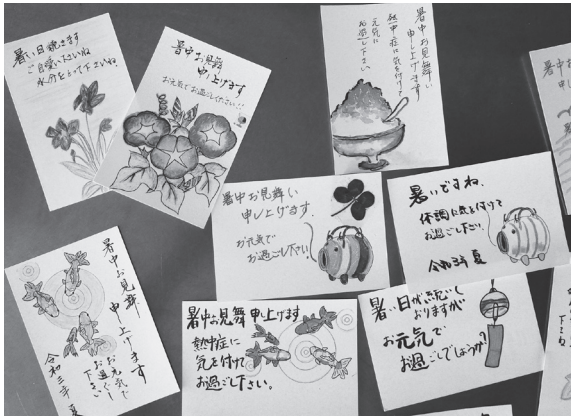 暑い日続きます
ご自愛くださいね
水分をとって下さいね
暑中お見舞
申し上げます
お元気でお過ごしください!!
暑中お見舞い
申し上げます
熱中症に気を付けて
元気に
お過し下さい
暑中お見舞い
申し上げます。
お元気で
お過ごし下さい
暑いですね、
体調に気を付けて
お過ごし下さい。
令和3年 夏
暑中お見舞
申し上げます
お元気で
お過ごし
下さい
令和三年 夏
暑中お見舞 申し上げます
熱中症に
気を付けて
お過ごし下さい。
暑い日が続いて
おりますが
お元気で
お過ごしでしょうか?